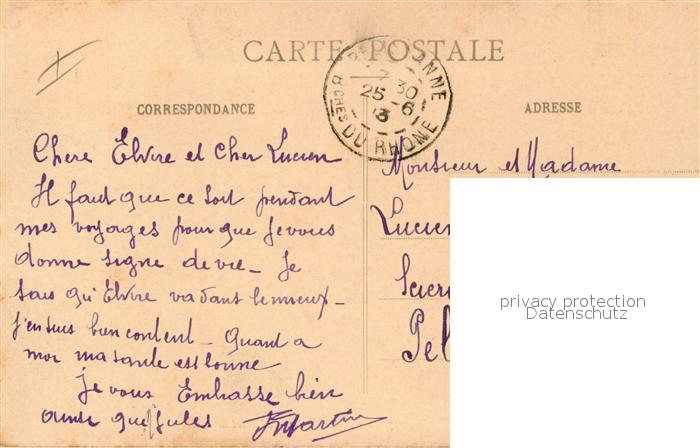 CARTE POSTALE
7 30
25-6
13
BCHES DU RHONE
CORRESPONDANCE
ADRESSE
Chere Elvire et Cher Lucien
Il faut que ce soit pendant
mes voyages pour que je vous
donne signe de vie - Je
sais qu'Elvire va dans le mieux -
j'en suis bien content - Quant a
moi ma sante est bonne
Je vous Embrasse bien
ainsi que Jules JMartin
Monsieur et Madame
Lucien
Pel
privacy protection
Datenschutz